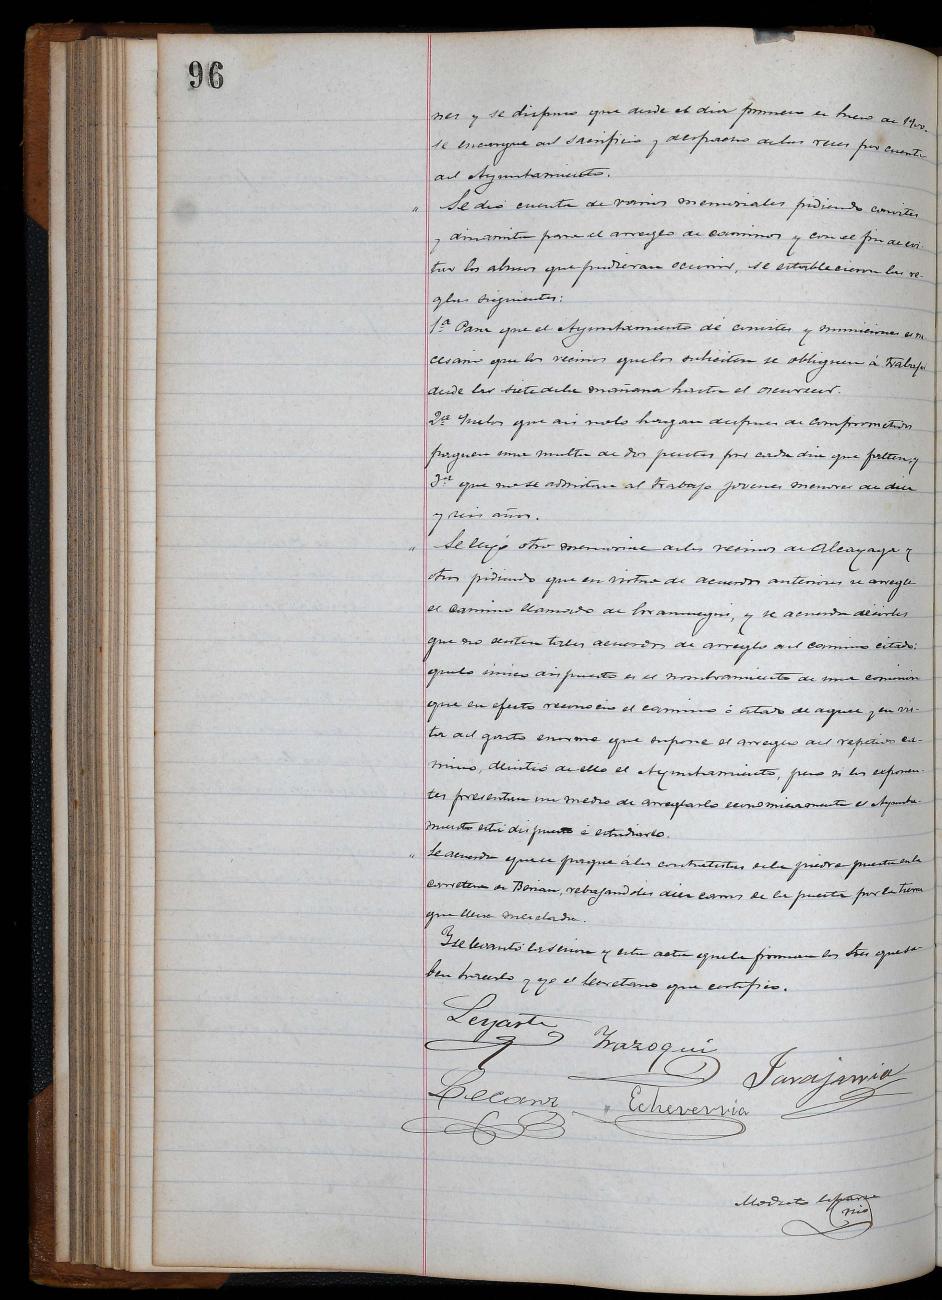 96
nes y se dispuso que desde el dia primero de Enero de 1900
se encargue del sacrificio y despacho de las reses por cuenta
del Ayuntamiento.
" Se dió cuenta de varios memoriales pidiendo convites
y dinamita para el arreglo de caminos y con el fin de evi-
tar los abusos que pudieran ocurrir, se establecieron las re-
glas siguientes:
1ª Para que el Ayuntamiento dé convites y municiones es ne
cesario que los vecinos que los soliciten se obliguen á trabajar
desde las siete de la mañana hasta el oscurecer.
2ª Que los que asi no lo hagan despues de comprometidos
paguen una multa de dos pesetas por cada dia que falten, y
3ª que no se admitan al trabajo jovenes menores de diez
y seis años.
" Se leyó otro memorial de los vecinos de Alcayaga y
otros pidiendo que en virtud de acuerdos anteriores se arregle
el camino llamado de, y se acuerda decirles
que no existen tales acuerdos de arreglo del camino citado:
que lo único dispuesto es el nombramiento de una comision
que en efecto reconoció el camino ó estado de aquel y en vis-
ta del gasto enorme que supone el arreglo del repetido ca-
mino, desistió de ello el Ayuntamiento, pero si los exponen-
tes presentan un medio de arreglarlo economicamente el Ayunta-
miento está dispuesto á estudiarlo.
" Se acuerda que se pague á los contratistas de la piedra puesta en la
carretera de Berian, rebajandoles diez carros de la puesta por la tierra
que lleva mezclada.
Y se levantó la sesion y esta acta que la firman los Sres que sa-
ben hacerlo y yo el Secretario que certifico.
Legasta
Irazoqui
Jarajarria
Lecanr
Echeverria
Modesto